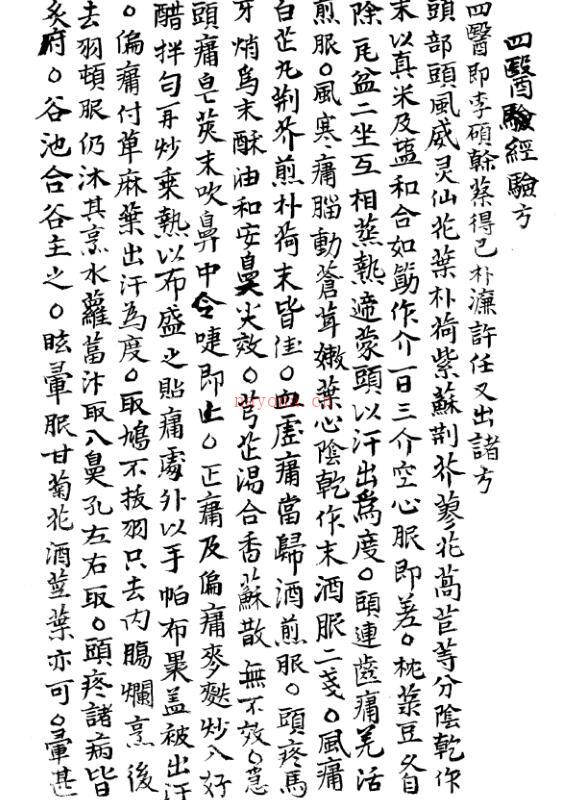 四醫經驗方
四醫即李碩幹蔡得己朴濂許任又出諸方
頭部頭風威灵仙花葉朴荷紫蘇荆芥蔘花萵苣等分陰乾作
末以真米及塩和合如筯作介一日三介空心服即差○枕菉豆又自
除瓦盆二坐互相蒸熱適蒙頭以汗出爲度○頭連齒痛羌活
煎服○風寒痛腦動蒼茸嫩葉心陰乾作末酒服二戔○風痛
白芷九荆芥煎朴荷末皆佳○血虛痛當歸酒煎服○頭疼馬
牙焇爲末酥油和安鼻尖效○芎芷湯合香蘇散無不效○
頭痛皂莢末吹鼻中令嚏即止○正痛及偏痛麥麩炒入好
醋拌勻再炒乗熱以布盛之貼痛處外以手帕布裹盖被出汗
○偏痛付草麻葉出汗為度○取鳩不拔羽只去内腸爛烹後
去羽頓服仍沐其烹水蘿葍汁取入鼻孔左右取○頭疼諸病皆
灸府○谷池合谷主之○眩暈服甘菊花酒莖葉亦可○暈甚